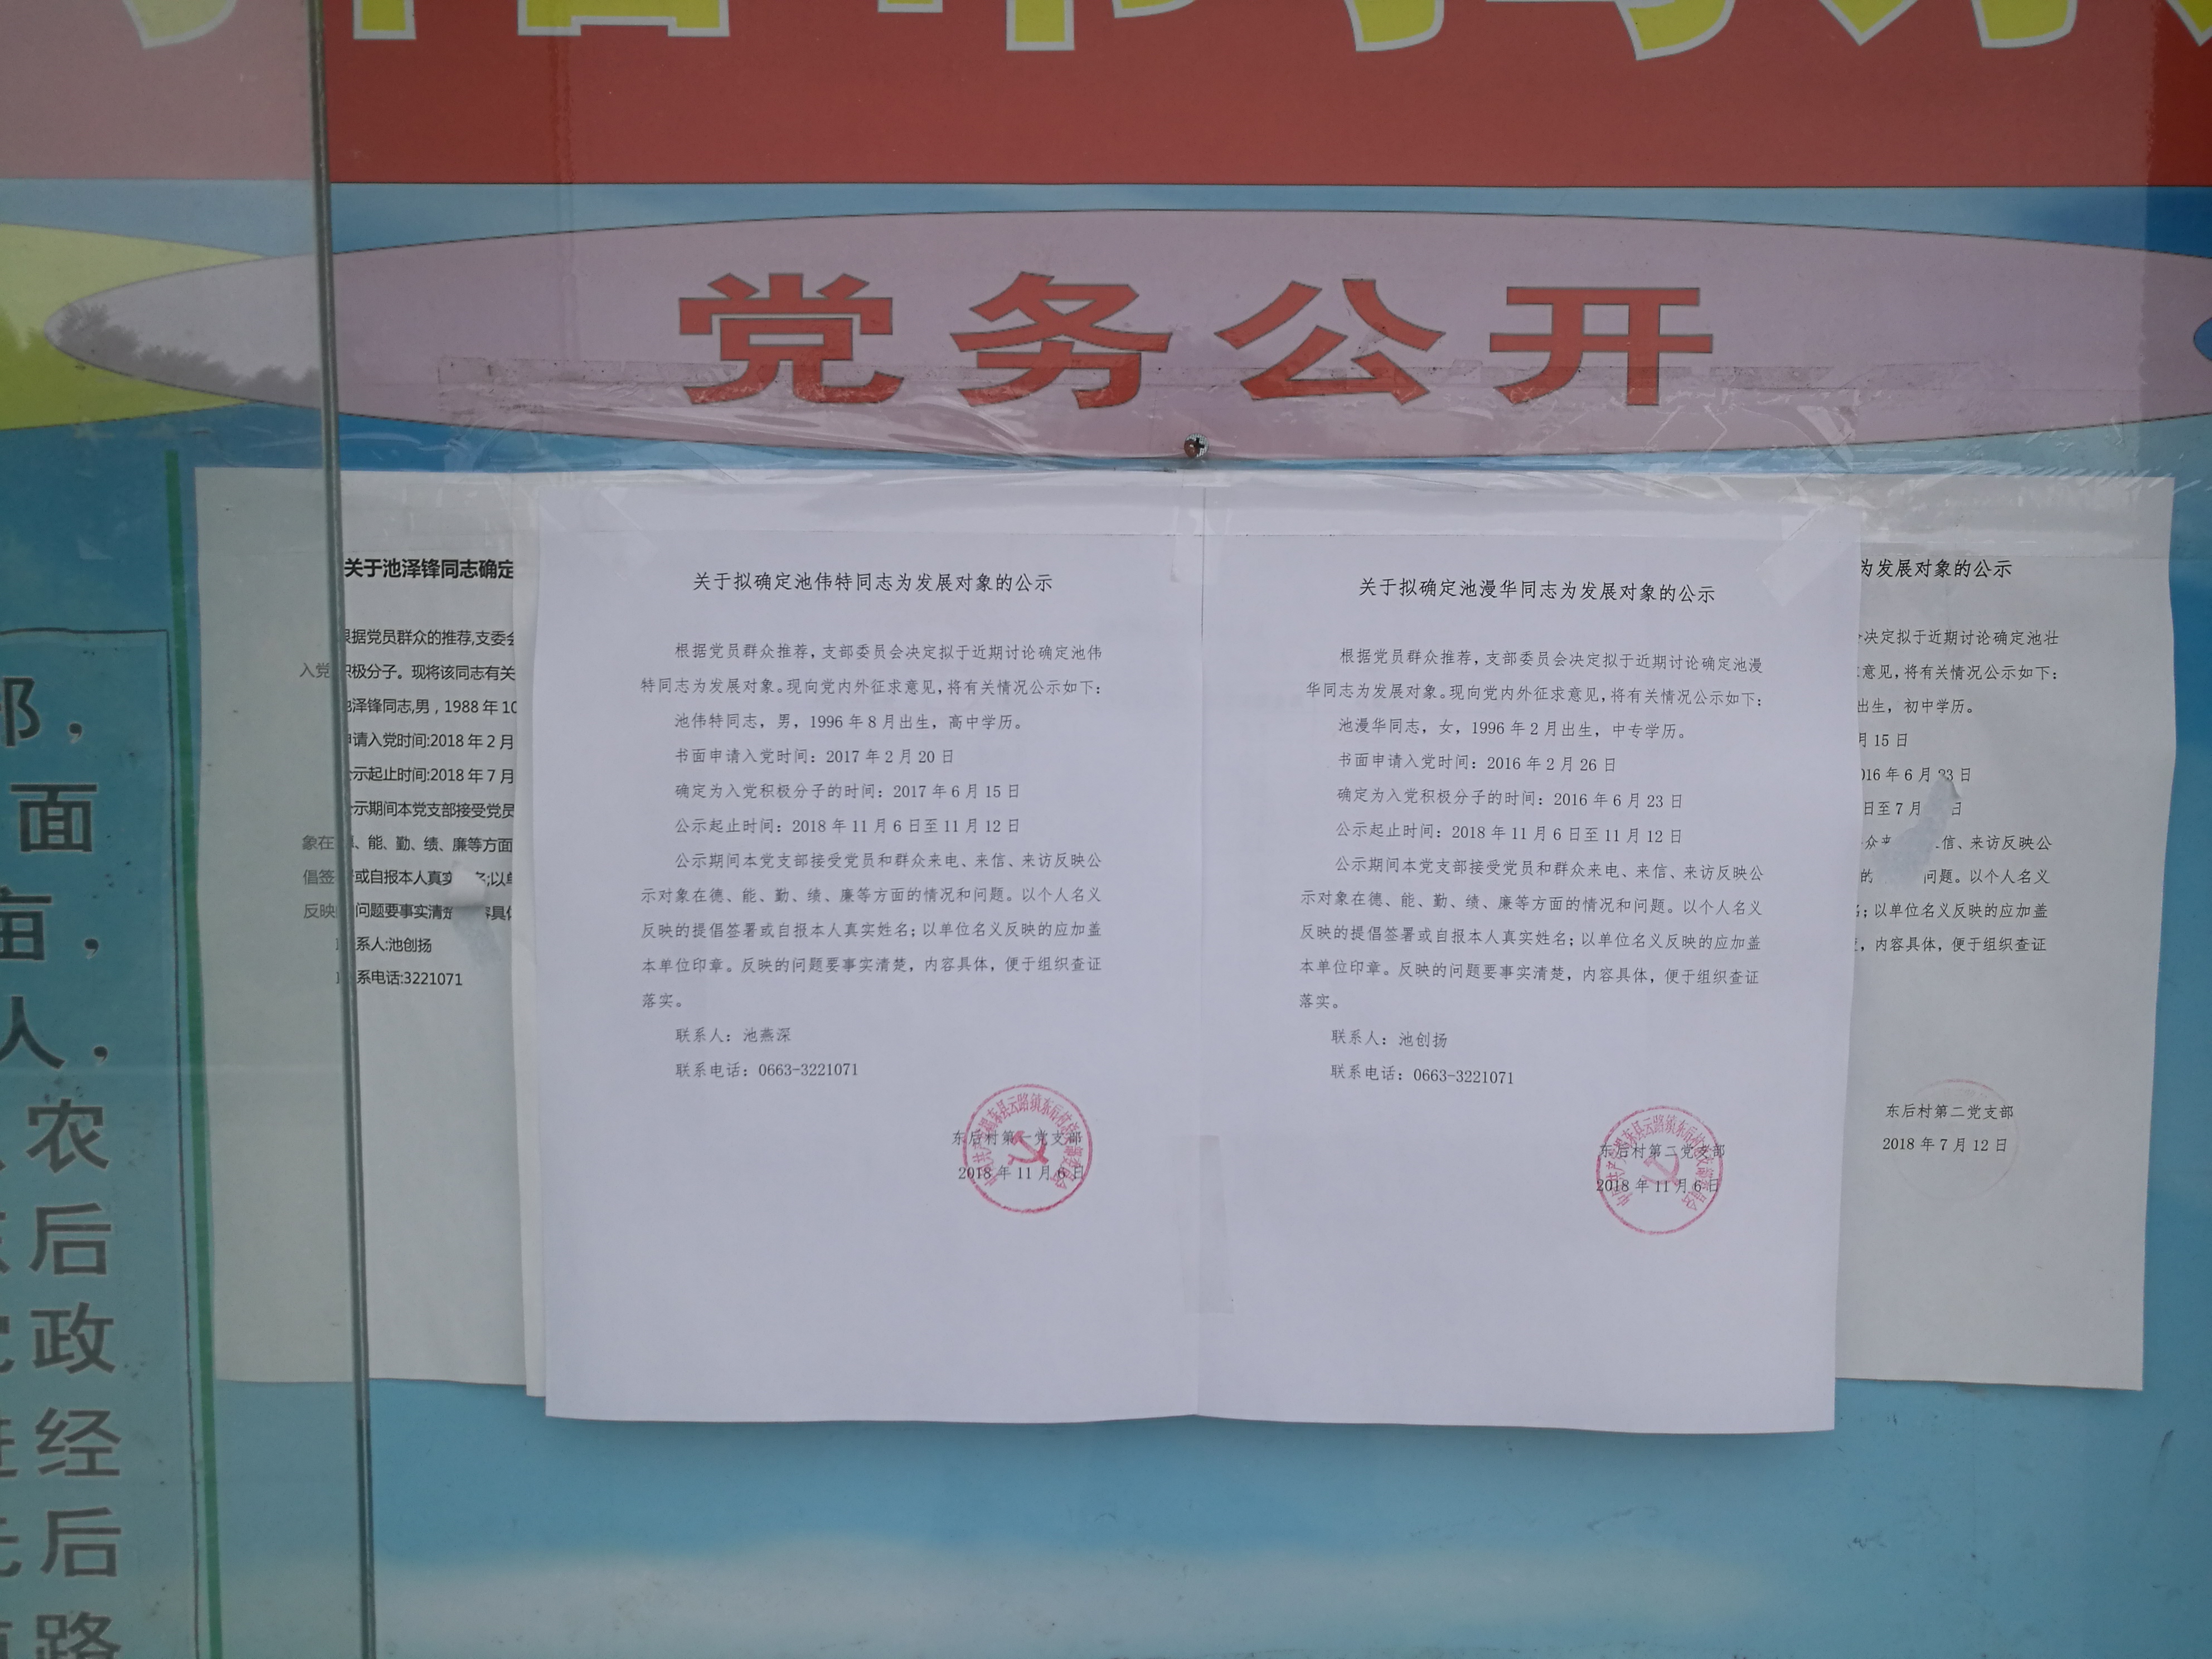 党务公开
关于池泽锋同志确定
根据党员群众的推荐,支委会
入党积极分子。现将该同志有关
池泽锋同志,男，1988年10
申请入党时间:2018年2月
公示起止时间:2018年7月
公示期间本党支部接受党员
象在 、能、勤、绩、廉等方面
倡签署或自报本人真实 名;以单
反映的问题要事实清楚 容具体
联系人:池创扬
联系电话:3221071
关于拟确定池伟特同志为发展对象的公示
根据党员群众推荐，支部委员会决定拟于近期讨论确定池伟
特同志为发展对象。现向党内外征求意见，将有关情况公示如下：
池伟特同志，男，1996年8月出生，高中学历。
书面申请入党时间：2017年2月20日
确定为入党积极分子的时间：2017年6月15日
公示起止时间：2018年11月6日至11月12日
公示期间本党支部接受党员和群众来电、来信、来访反映公
示对象在德、能、勤、绩、廉等方面的情况和问题。以个人名义
反映的提倡签署或自报本人真实姓名；以单位名义反映的应加盖
本单位印章。反映的问题要事实清楚，内容具体，便于组织查证
落实。
联系人：池燕深
联系电话：0663-3221071
东后村第一党支部
2018年11月6日
关于拟确定池漫华同志为发展对象的公示
根据党员群众推荐，支部委员会决定拟于近期讨论确定池漫
华同志为发展对象。现向党内外征求意见，将有关情况公示如下：
池漫华同志，女，1996年2月出生，中专学历。
书面申请入党时间：2016年2月26日
确定为入党积极分子的时间：2016年6月23日
公示起止时间：2018年11月6日至11月12日
公示期间本党支部接受党员和群众来电、来信、来访反映公
示对象在德、能、勤、绩、廉等方面的情况和问题。以个人名义
反映的提倡签署或自报本人真实姓名；以单位名义反映的应加盖
本单位印章。反映的问题要事实清楚，内容具体，便于组织查证
落实。
联系人：池创扬
联系电话：0663-3221071
东后村第二党支部
2018年11月6日
为发展对象的公示
决定拟于近期讨论确定池壮
意见，将有关情况公示如下：
出生，初中学历。
月15日
016年6月23日
日至7月 日
众 信、来访反映公
的 问题。以个人名义
；以单位名义反映的应加盖
，内容具体，便于组织查证
东后村第二党支部
2018年7月12日
面
亩，
人，
农
后
政
经
后
路